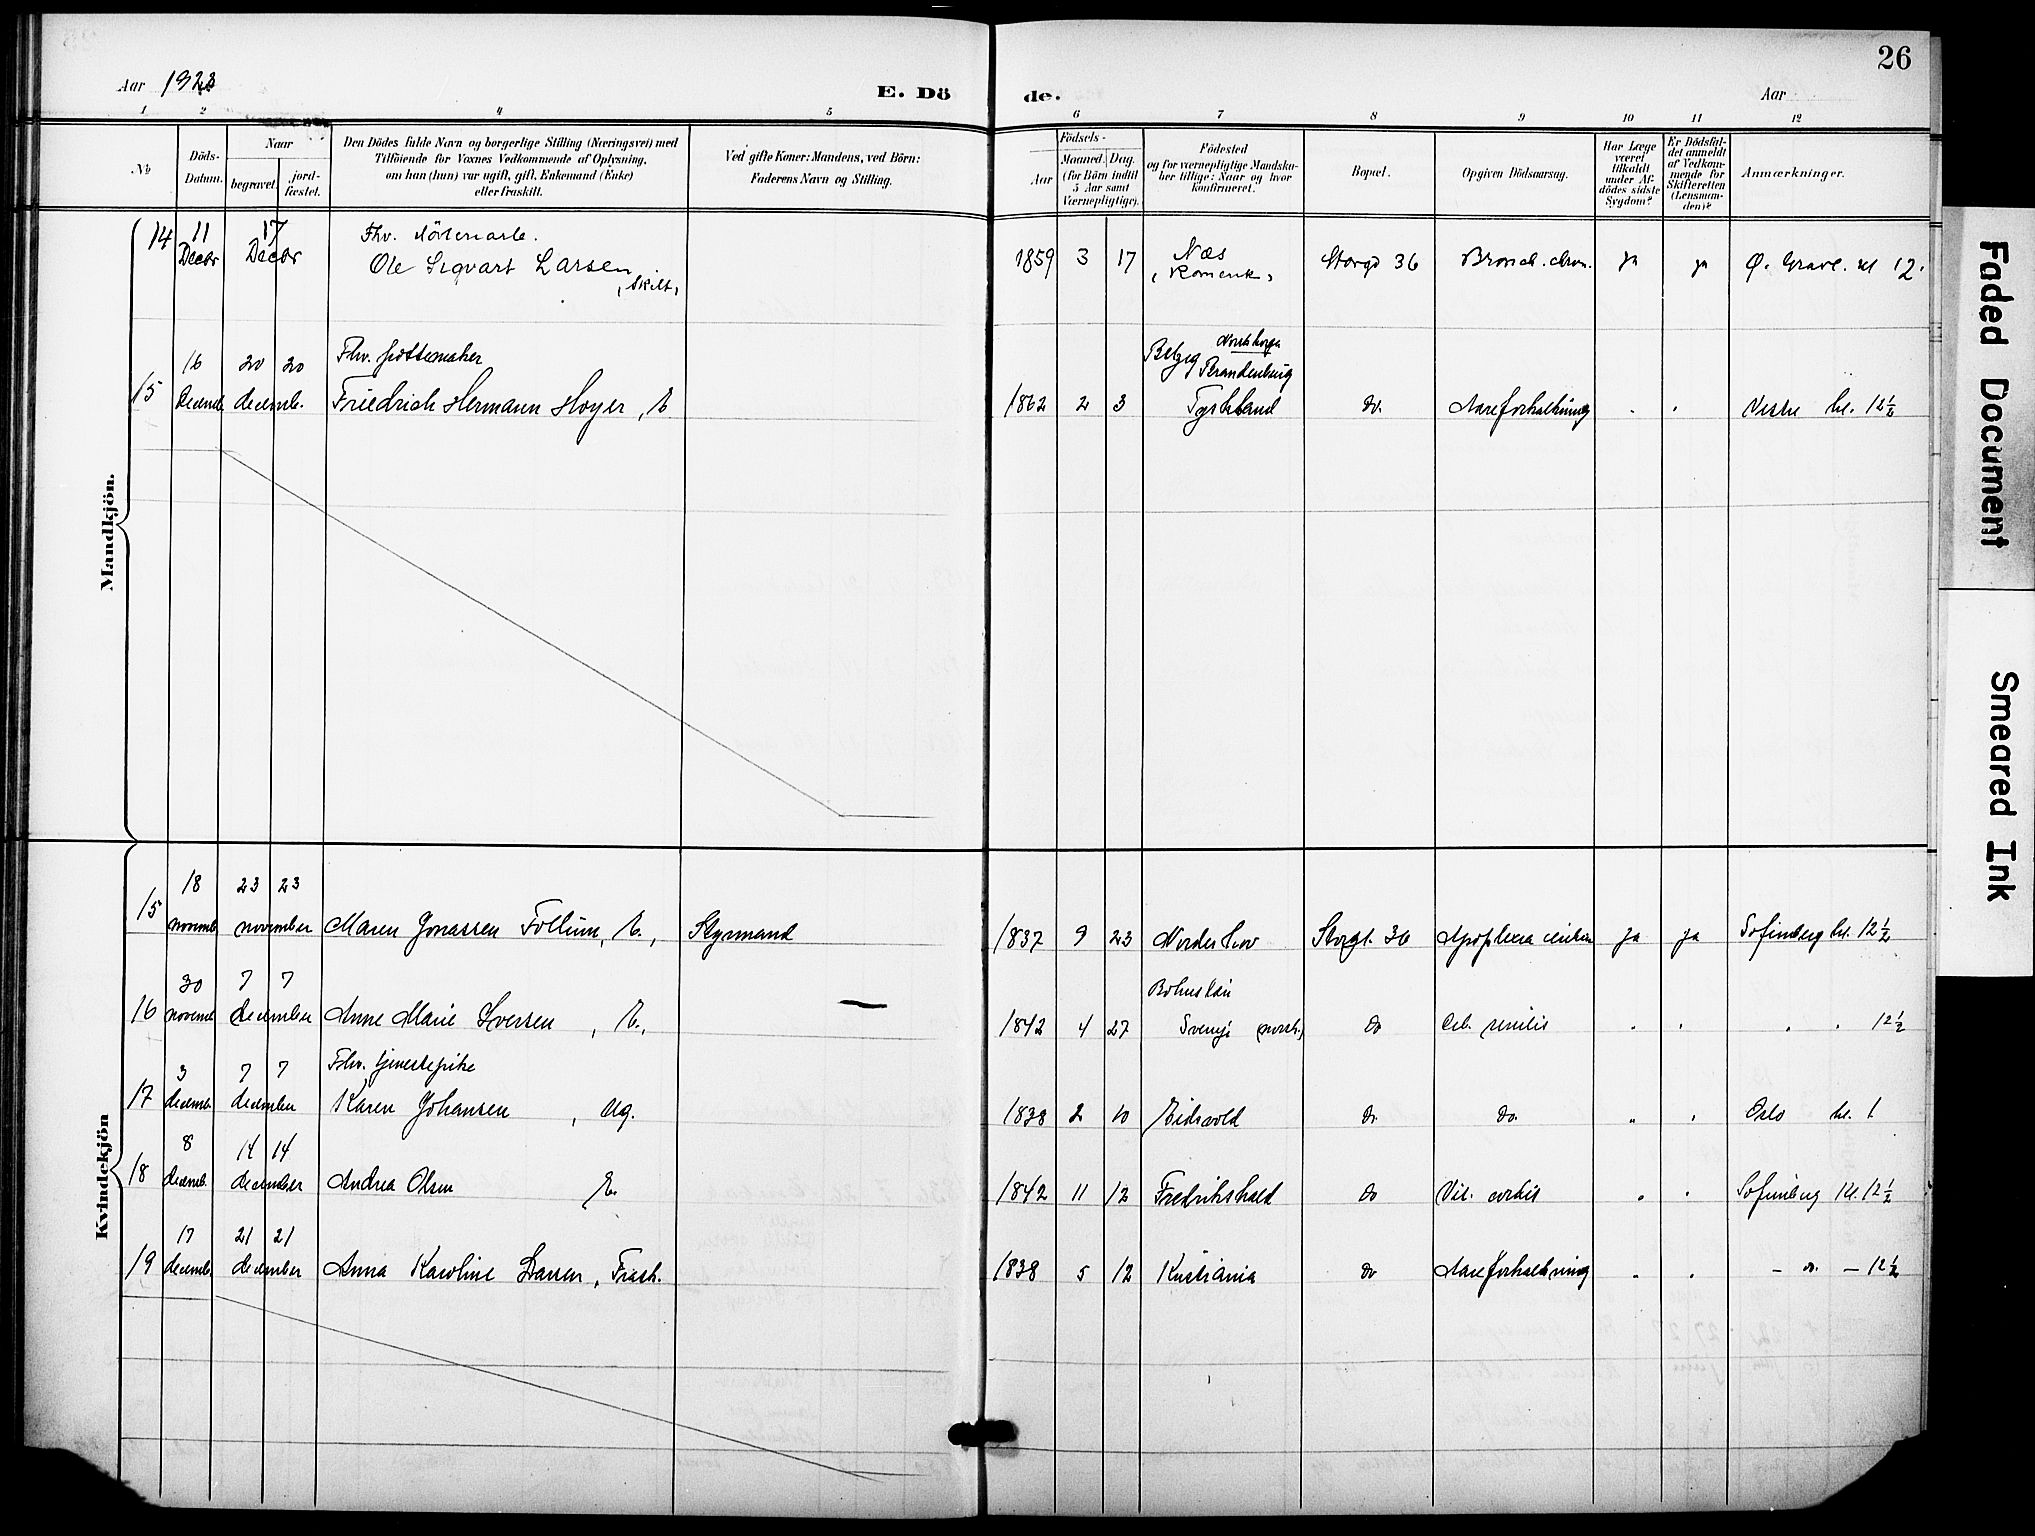 26
Aar 1923
E. Dö
de.
Aar
1 2 4 5 6 7 8 9 10 11 12
No
Döds-
Datum.
Naar
begravet.
jord-
fæstet.
Den Dödes fulde Navn og borgerlige Stilling (Næringsvei) med
Tilföiende for Voxnes Vedkommende af Oplysning,
om han (hun) var ugift, gift, Enkemand (Enke)
eller fraskilt.
Ved gifte Koner: Mandens, ved Börn:
Faderens Navn og Stilling.
Födsels-
Aar
Maaned. Dag.
(for Börn indtil
5 Aar samt
Værnepligtige).
Födested
og for værnepligtige Mandska-
ber tillige: Naar og hvor
konfirmeret.
Bopæl.
Opgiven Dödsaarsag.
Har Læge
været
tilkaldt
under Af-
dödes sidste
Sygdom?
Er Dödsfal-
det anmeldt
af Vedkom-
mende for
Skifteretten
(Lensman-
den)?
Anmærkninger.
Mandkjön.
14 11 Decbr 17 Decbr
Fhv.
Ole Sigvart Larsen, skilt,
1859 3 17 Næs
Storgt 36 Bronch. chron. ja ja Ø. Gravl. kl 12.
15 16 decemb. 20 20 decemb.
Fhv. pottemaker
Friedrich Hermann Hoyer, E
1862 2 3 Belzig Brandenburg
Tyskland do. Aareforkalkning " " Vestre kl. 12½
Kvindekjön
15 18 novemb. 23 23 november Maren Jonassen Follum, E., Styrmand
1837 9 23 Norderhov Storgt. 36 Apoplexia ja ja Sofienberg kl. 12½
16 30 novemb. 7 7 december Anne Marie Iversen, E.,
1842 4 27 Bohuslän
Sverige (norsk) do Deb. senilis " " " " 12½
17 3 decemb. 7 7 december
Fhv. tjenestepike
Karen Johansen, ug.
1838 2 10 Eidsvold do do. " " Oslo kl. 1
18 8 decemb. 14 14 december Andrea Olsen E.
1842 11 12 Fredrikshald do Vit. cordis " " Sofienberg kl. 12½
19 17 decemb. 21 21 december Anna Karoline Larsen, Frask.
1838 5 12 Kristiania do Aareforkalkning " " - do. - 12½
Faded Document
Smeared Ink